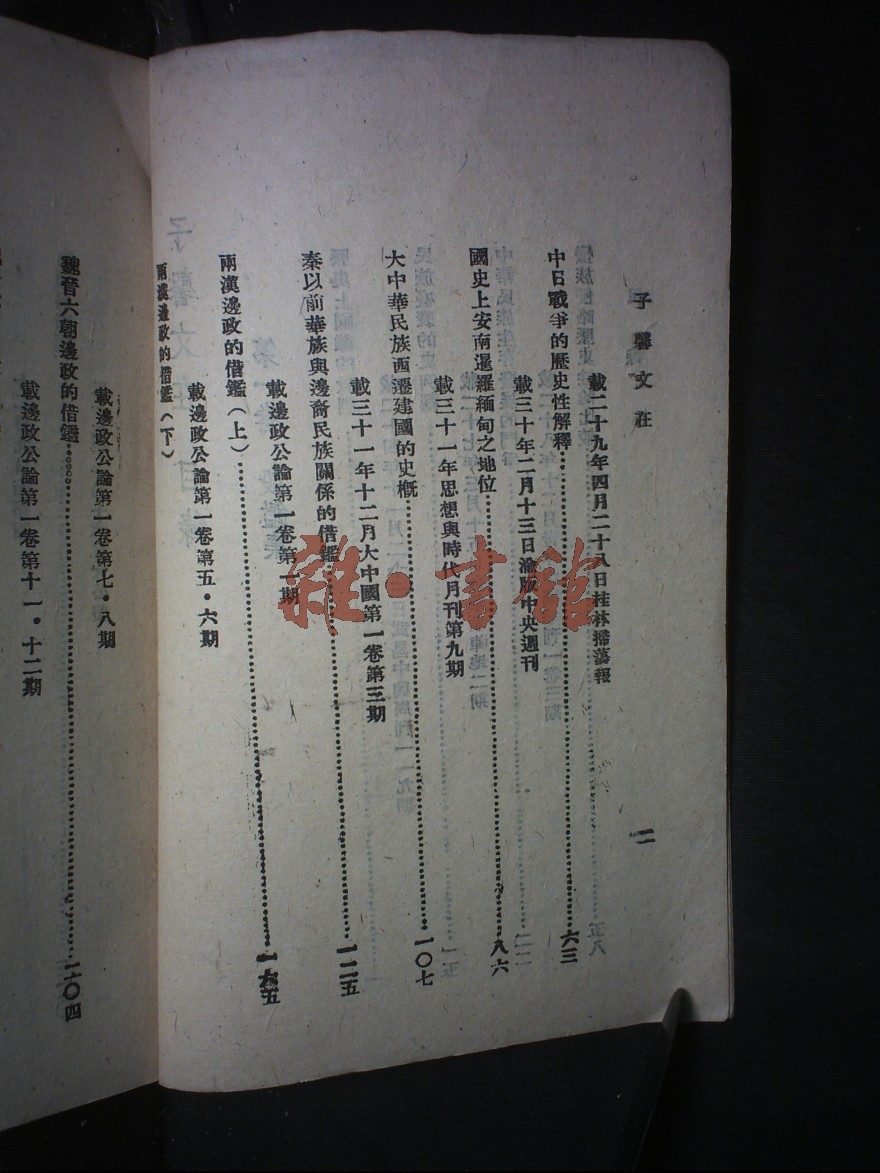 子馨文在
二
載二十九年四月二十八日桂林掃蕩報
中日戰爭的歷史性解釋 六三
載三十年二月十三日渝版中央週刊
國史上安南暹羅緬甸之地位 八六
載三十一年思想與時代月刊第九期
大中華民族西遷建國的史概 一〇七
載三十一年十二月大中國第一卷第三期
秦以前華族與邊裔民族關係的借鑑 一二五
載邊政公論第一卷第一期
兩漢邊政的借鑑(上) 一六五
載邊政公論第一卷第五·六期
兩漢邊政的借鑑(下)
載邊政公論第一卷第七·八期
魏晉六朝邊政的借鑑 二〇四
載邊政公論第一卷第十一·十二期
雜·書館